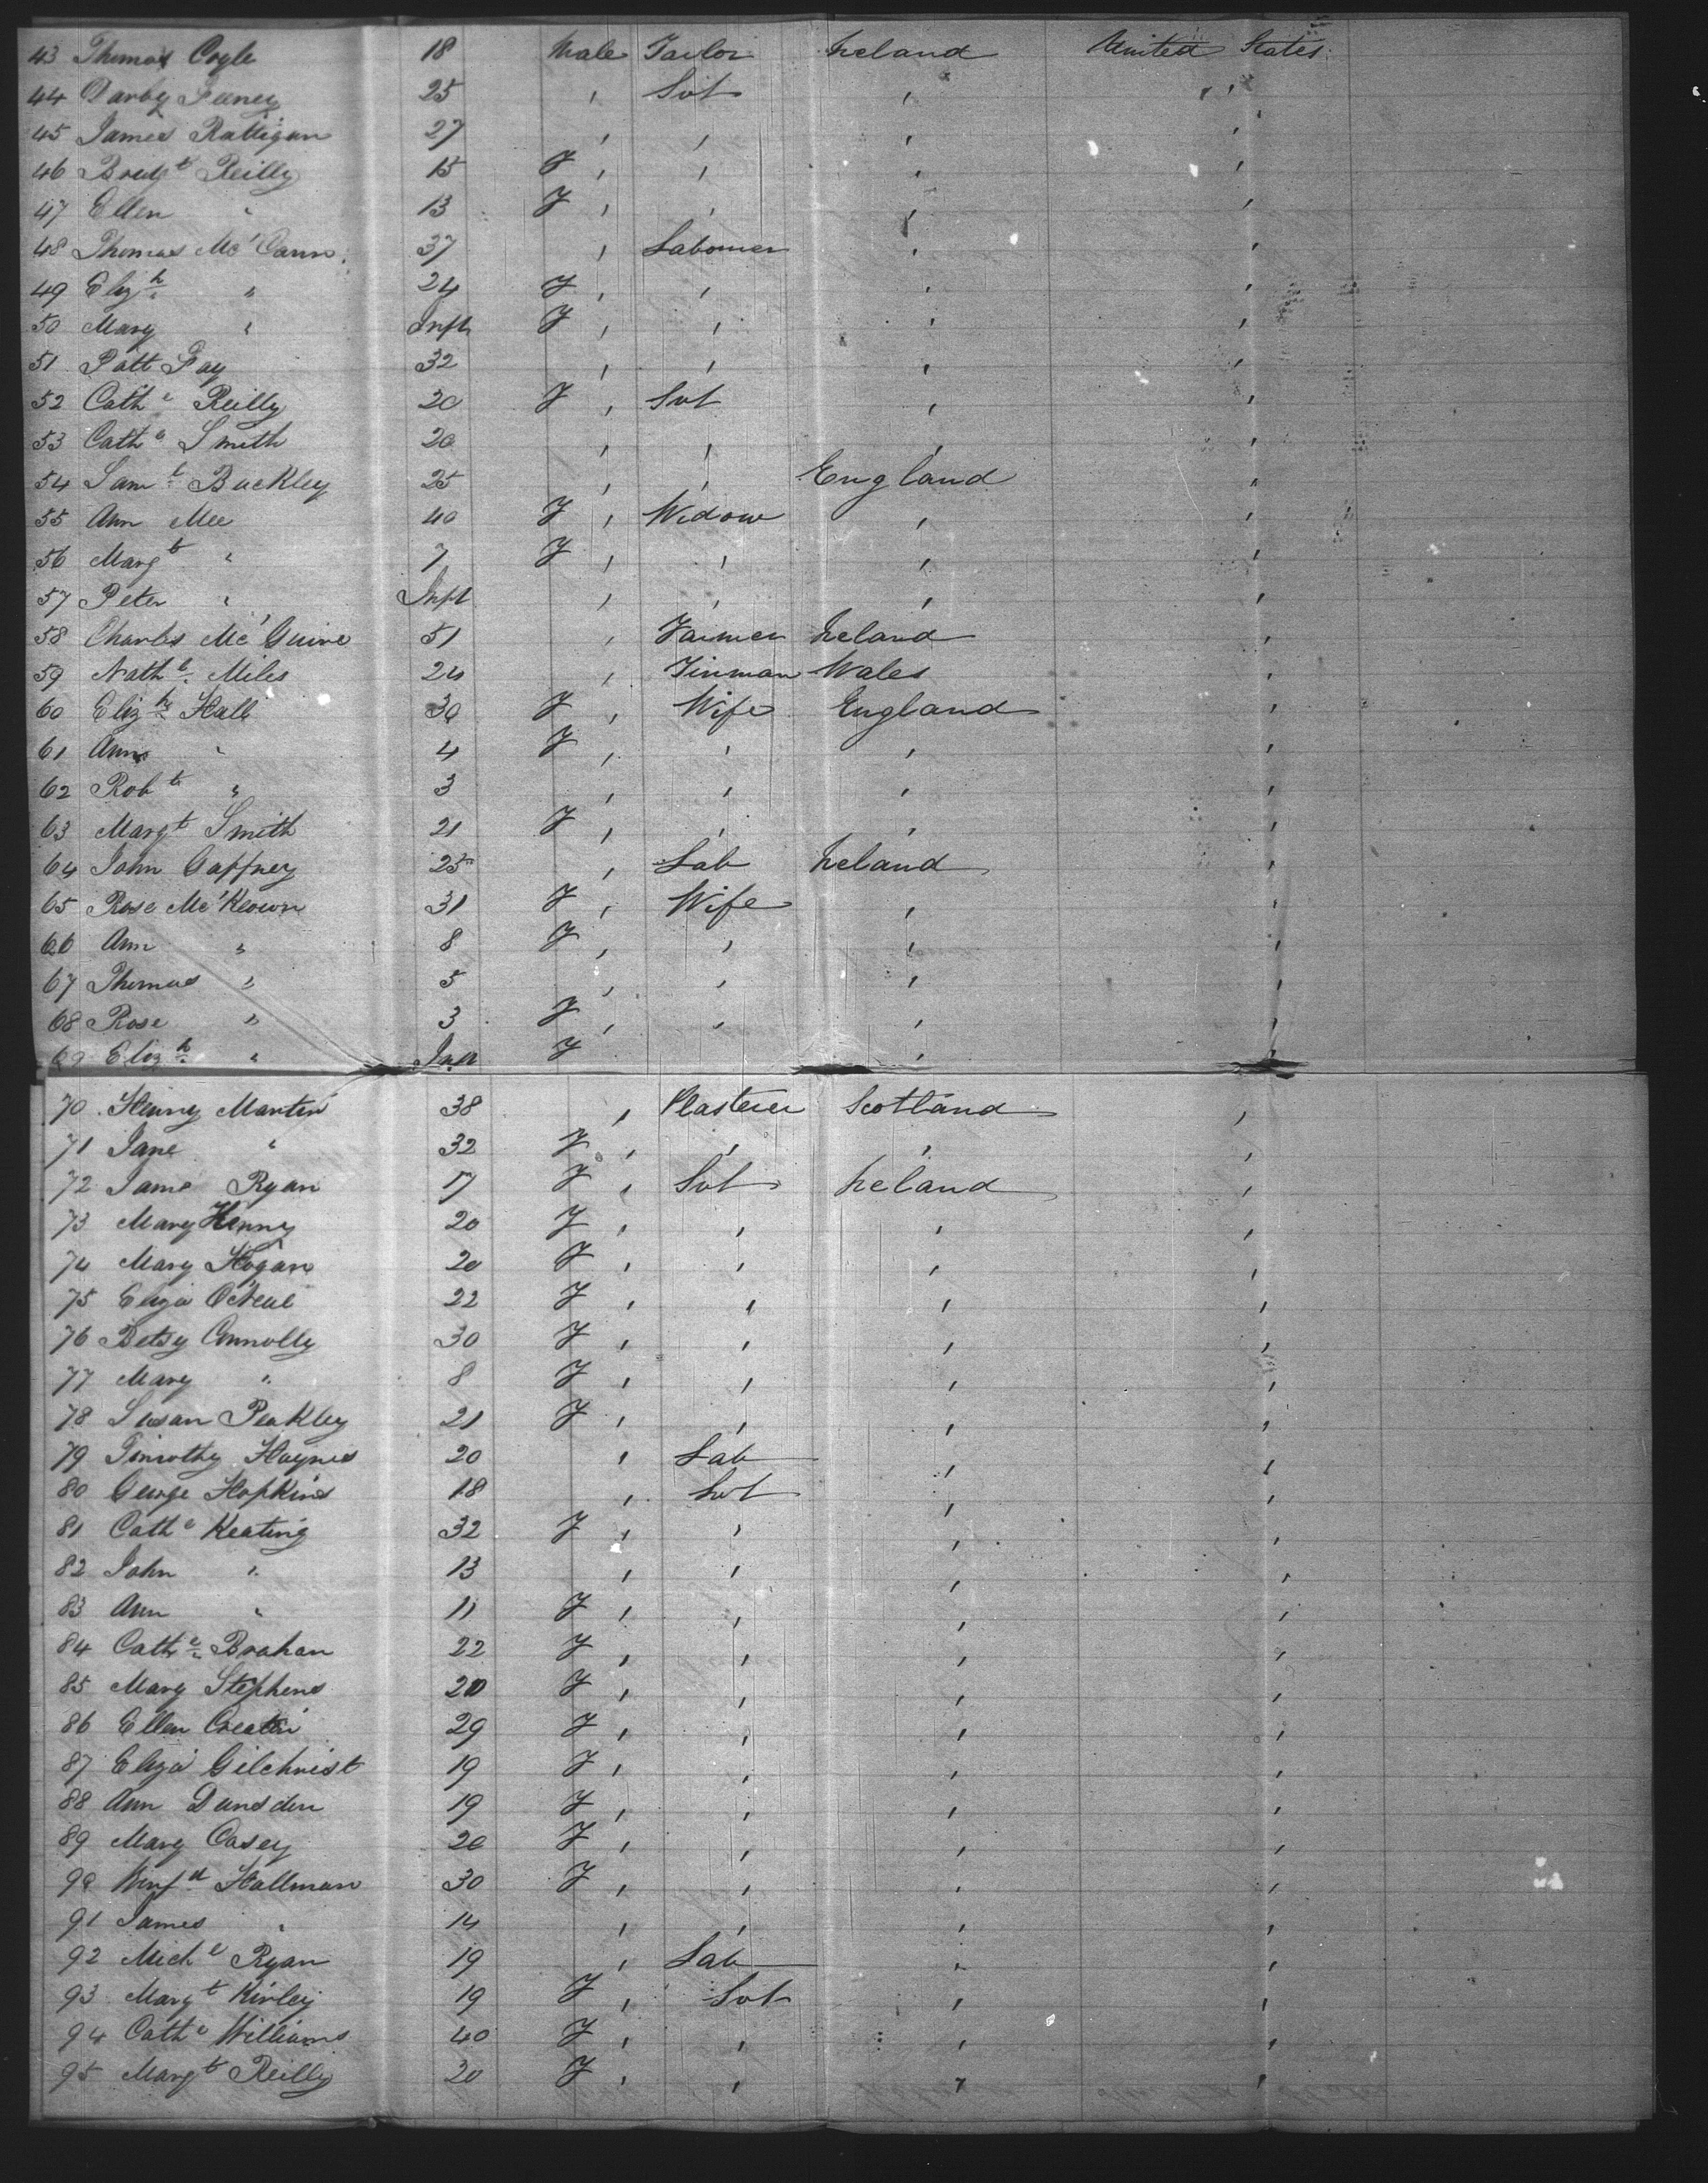 43 Thomas Coyle 18 Male Tailor Ireland United States
44 Darby Feeney 25 , Svt , ,
45 James Rattigan 27 , , , ,
46 Bridgt Reilly 15 F , , , ,
47 Ellen " 13 F , , , ,
48 Thomas Mc'Cann 37 , Labourer , ,
49 Elizh " 24 F , , , ,
50 Mary " Inft F , , , ,
51 Patt Fay 32 , , , ,
52 Cathe Reilly 20 F , Svt , ,
53 Cathe Smith 20 , , , ,
54 Saml Buckley 25 , , England "
55 Ann Mee 40 F , Widow , ,
56 Margt " 7 F , , , ,
57 Peter " Inft , , , ,
58 Charles Mc'Guire 51 , Farmer Ireland ,
59 Nathl Miles 24 , Tinman Wales ,
60 Elizh Hall 30 F , Wife England ,
61 Ann " 4 F , , , ,
62 Robt " 3 , , , ,
63 Margt Smith 21 F , , , ,
64 John Gaffney 25 , Lab Ireland ,
65 Rose Mc'Keown 31 F , Wife , ,
66 Ann " 8 F , , , ,
67 Thomas " 5 , , , ,
68 Rose " 3 F , , , ,
69 Elizh " Inft F , ,
70 Henry Martin 38 , Plasterer Scotland ,
71 Jane " 32 F , , , ,
72 Jame Ryan 17 F , Svt Ireland ,
73 Mary Kenny 20 F , , , ,
74 Mary Hogan 20 F , , , ,
75 Eliza O'Neil 22 F , , , ,
76 Betsy Connolly 30 F , , , ,
77 Mary " 8 F , , , ,
78 Susan Peakley 21 F , , , ,
79 Timothy Haynes 20 , Lab , ,
80 George Hopkins 18 , Svt , ,
81 Cathe Keating 32 F , , , ,
82 John " 13 , , , ,
83 Ann " 11 F , , , ,
84 Cathe Brahan 22 F , , , ,
85 Mary Stephens 20 F , , , ,
86 Ellen 29 F , , , ,
87 Eliza Gilchrist 19 F , , , ,
88 Ann Dunsden 19 F , , , ,
89 Mary Casey 20 F , , , ,
90 Winfd Hallman 30 F , , , ,
91 James " 14 , , , ,
92 Michl Ryan 19 , Lab , ,
93 Margt Kirley 19 F , Svt , ,
94 Cathe Williams 40 F , , , ,
95 Margt Reilly 20 F , , , ,